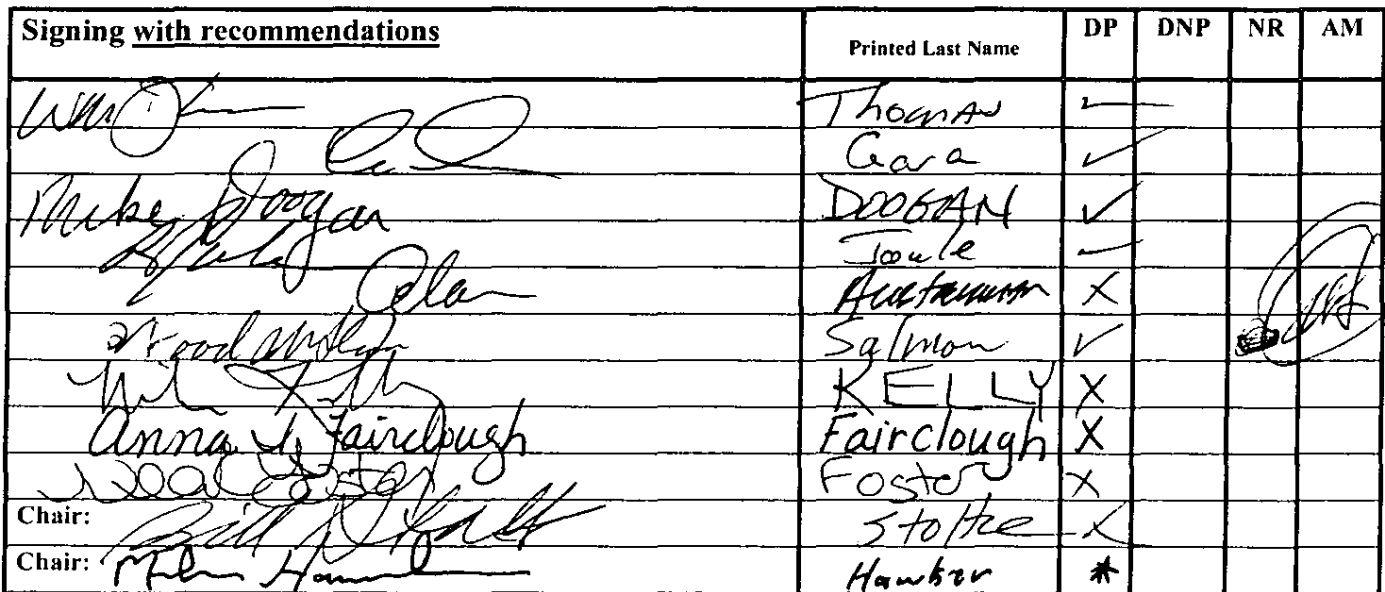 Signing with recommendations Printed Last Name DP DNP NR AM
Thomas
Gara ✓
Mike Doogan DOOGAN ✓
Joule
X
Salmon ✓
Mike Kelly KELLY X
Anna I. Fairclough Fairclough X
Neal Foster Foster X
Chair: Bill Stoltze Stoltze X
Chair: Hawker *